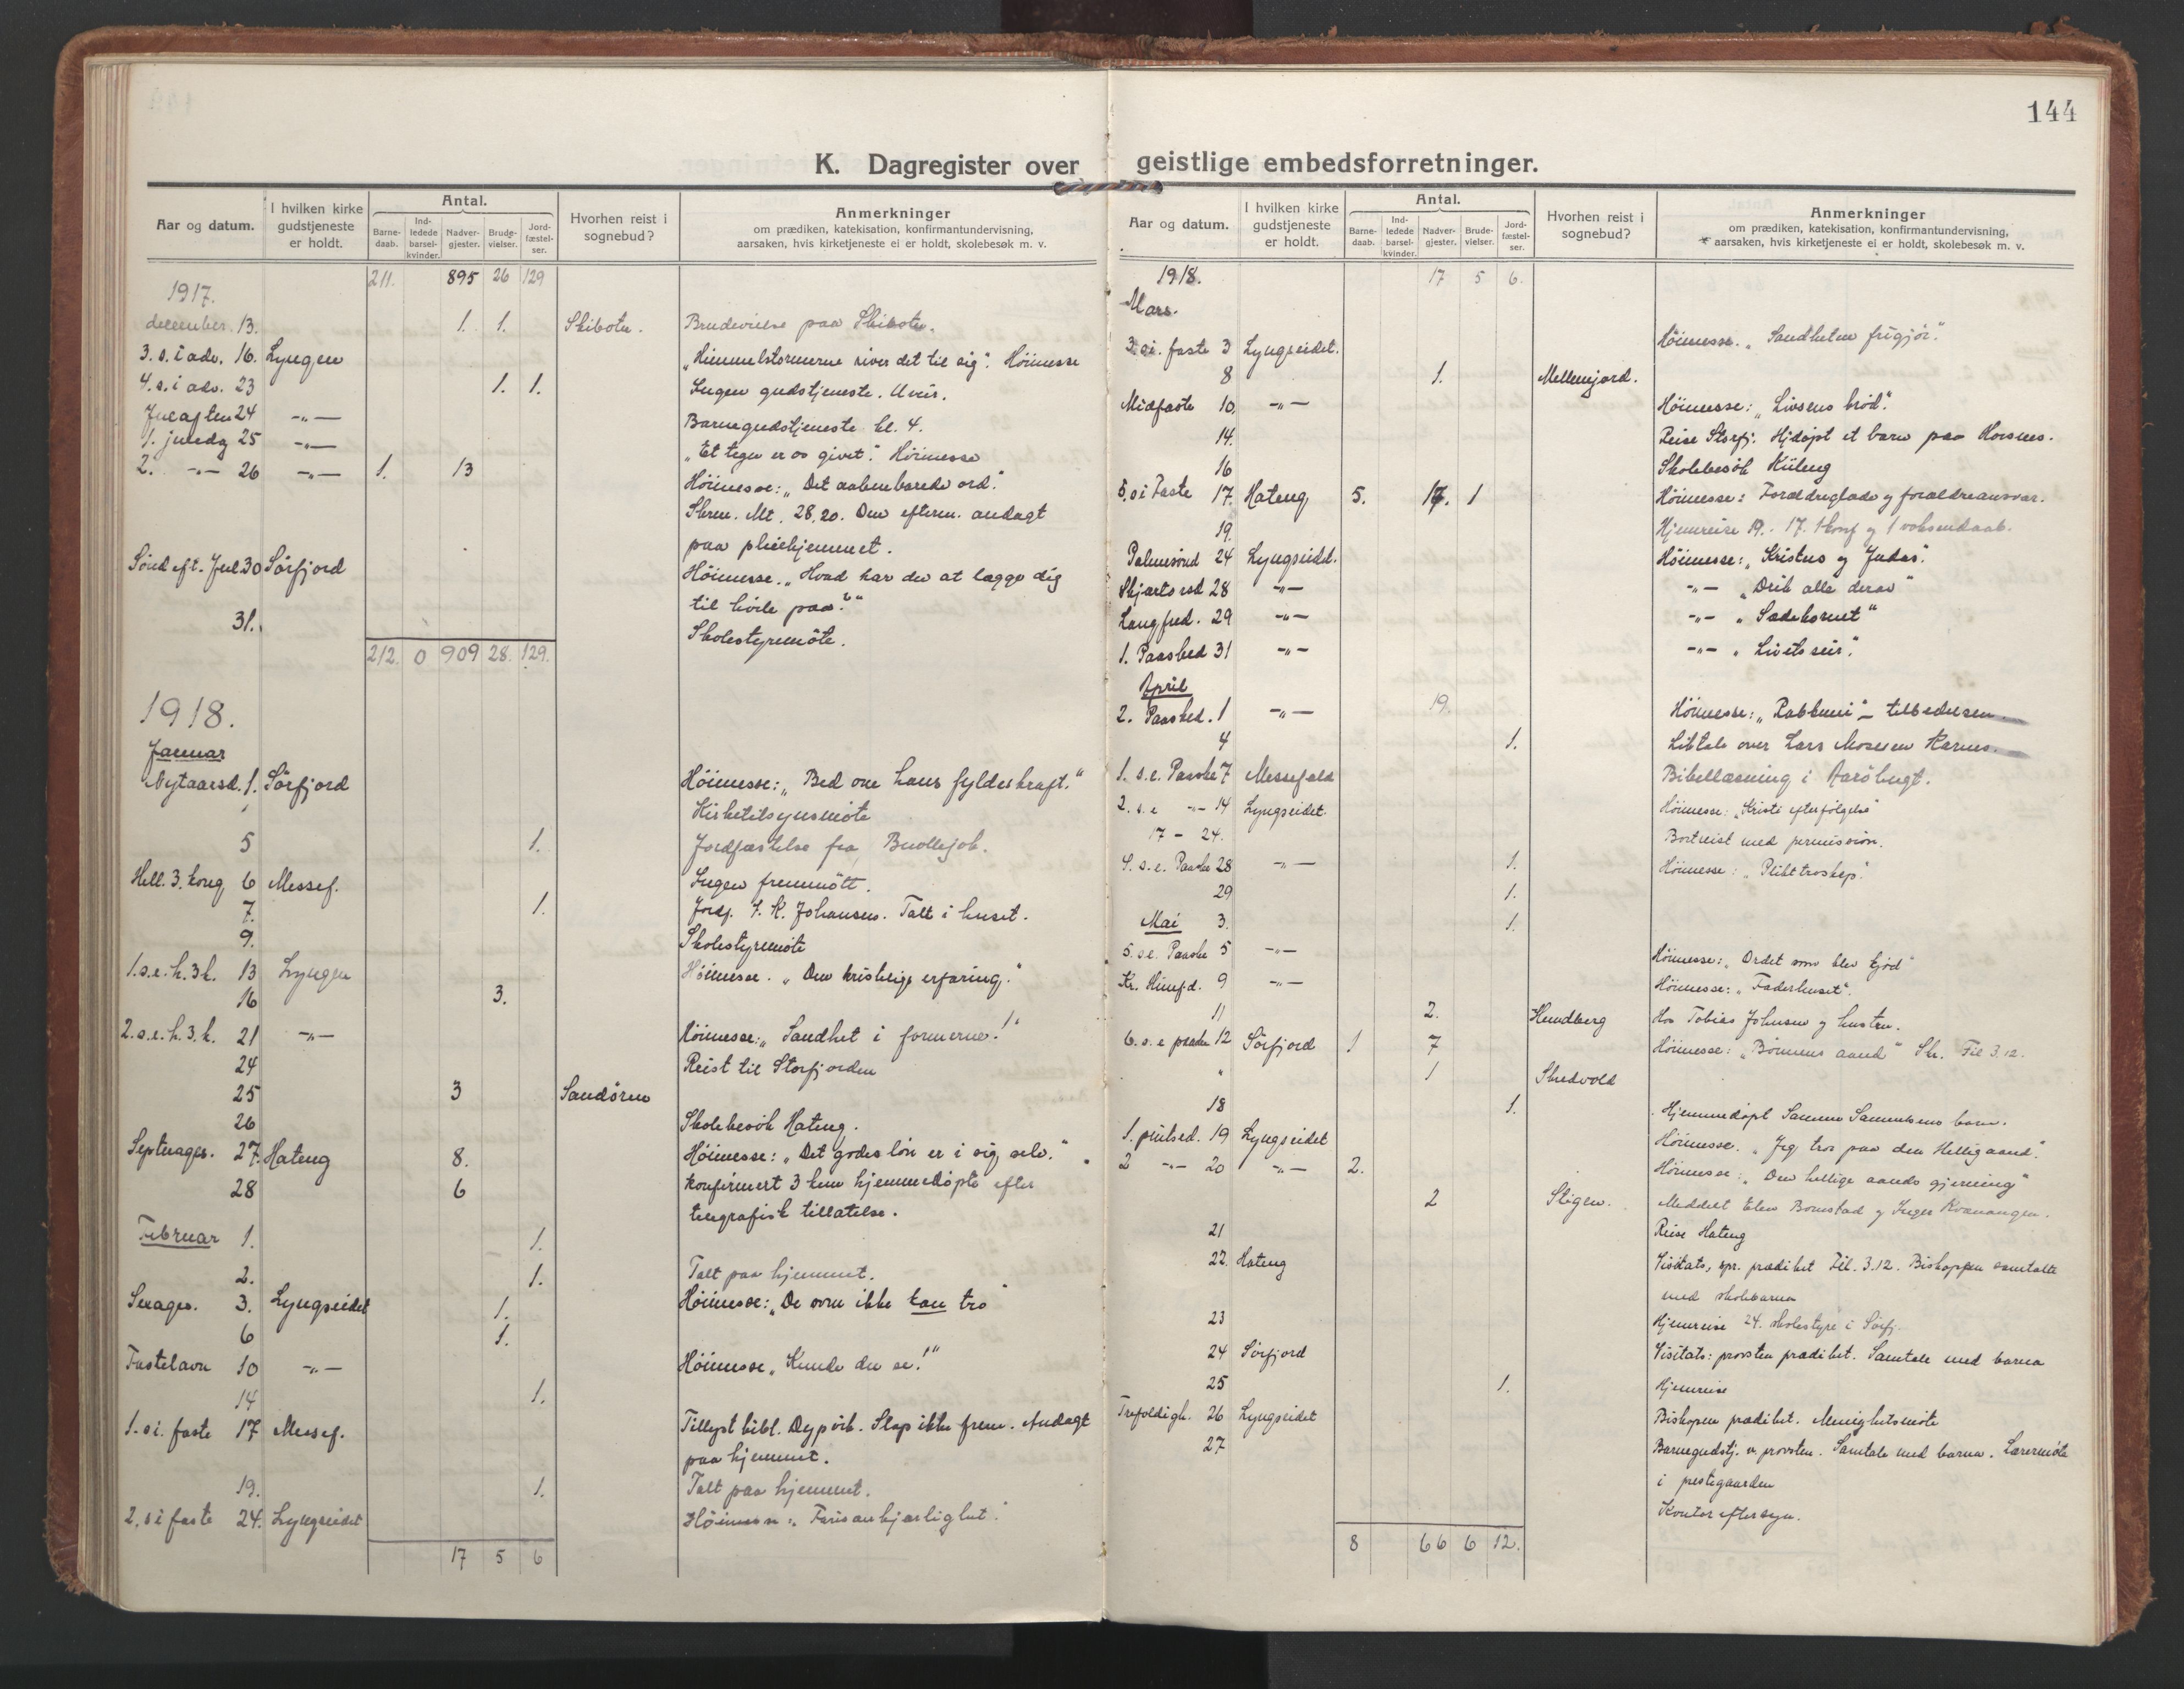 144
K. Dagregister over geistlige embedsforretninger.
Aar og datum. I hvilken kirke gudstjeneste er holdt. Antal. Barnedaab. Indledede barselkvinder. Nadvergjester. Brudevielser. Jordfæstelser. Hvorhen reist i sognebud? Anmerkninger om prædiken, katekisation, konfirmantundervisning, aarsaken, hvis kirketjeneste ei er holdt, skolebesøk m. v.
1917. 211. 895 26 129
december. 13. 1. 1. Skibotn. Brudevielse paa Skibotn.
3. s. i adv. 16. Lyngen „Himmelstormerne river det til sig“. Höimesse
4. s. i adv. 23 1. 1. Ingen gudstjeneste. Uveir.
Juleaften 24 -„- Barnegudstjeneste kl. 4.
1. juledag 25 -„- „Et tegn er os givet“. Höimesse
2. -„- 26 -„- 1. 13 Höimesse: „Det aabenbarede ord.“
Skrev. Mt. 28,20. Den efterm. andagt
paa pleiehjemmet.
Sönd eft. Jul 30 Sörfjord Höimesse. „Hvad har du at lægge dig
til hvile paa?“
31. Skolestyremöte.
212. 0 909 28. 129.
1918.
Januar
Nytaarsd. 1. Sörfjord Höimesse: „Bed om hans fyldeskraft.“
Kirketilsynsmöte
5 1. Jordfæstelse fra Buollejok.
Hell. 3. kong. 6 Messef. Ingen fremmött.
7. 1. Jordf. J. K. Johansen. Talt i huset.
9. Skolestyremöte
1. s. e. h. 3 k. 13 Lyngen Höimesse. „Den kristelige erfaring.“
16 3.
2. s. e. h. 3. k. 21 -„- Höimesse: „Sandhet i formerne!“
24 Reist til Storfjorden
25 3 Sandören
26 Skolebesök Hateng.
Septuages. 27. Hateng 8. Höimesse: „Det godes lön er i sig selv.“
28 6 konfirmert 3 hjemmedöpte efter
telegrafisk tillatelse.
Februar 1. 1.
2. 1. Talt paa hjemmet.
Sexages. 3. Lyngseidet 1. Höimesse: „De som ikke kan tro“
6 1.
Fastelavn 10 -„- Höimesse „Kunde du se!“
14 1.
1. s i. faste 17 Messef. Tillyst bibl. Dypvik. Slap ikke frem. Andagt
paa hjemmet.
19. 1. Talt paa hjemmet.
2. s i faste 24. Lyngseidet Höimesse: „Farisæerkjærlighet.“
17 5 6
Aar og datum. I hvilken kirke gudstjeneste er holdt. Antal. Barnedaab. Indledede barselkvinder. Nadvergjester. Brudevielser. Jordfæstelser. Hvorhen reist i sognebud? Anmerkninger om prædiken, katekisation, konfirmantundervisning, aarsaken, hvis kirketjeneste ei er holdt, skolebesøk m. v.
1918. 17 5 6.
Mars.
3. s i. faste 3 Lyngseidet. Höimesse. „Sandheten frigjör.“
8 1. Mellemjord.
Midfaste 10. -„- Höimesse: „Livsens bröd“.
14. Reise Storfj. Hjdöpt et barn paa Horsnes.
16 Skolebesök Kileng
5. s i Faste 17. Hateng 5. 17. 1 Höimesse: Forældreglæde og forældreansvar.
19. Hjemreise 19. 17. 1 konf og 1 voksendaab.
Palmesönd 24 Lyngseidet. Höimesse: „Kristus og Judas“.
Skjærtorsd 28 -„- -„- „Drik alle derav“
Langfred. 29 -„- -„- „Sædekornet“
1. Paasked 31 -„- -„- „Livets seir“.
April
2. Paasked. 1 -„- 19. Höimesse: „Rabbuni“ – tilbedelsen.
4 1. Liktale over Lars Mosesen Karnes.
1. s. e. Paaske 7 Messefeld Bibellæsning i Aaröbugt.
2. s. e -„- 14 Lyngseidet. Höimesse: „Kristi efterfölgelse“
17 – 24. Bortreist med permission.
4. s. e. Paaske 28 -„- 1. Höimesse: „Plikttroskap.“
29 1.
Mai 3. 1.
5. s e. Paaske 5 -„- Höimesse: „Ordet som blev kjöd“
Kr. Himf.d. 9 -„- Höimesse: „Faderhuset“.
11 2. Hundberg Hos Tobias Johnsen og hustru.
6. s. e paaske 12 Sörfjord 1 7 Höimesse: „Bönnens aand“ Skr. Fil 3.12.
„ 1 Skredvold
18 1. Hjemmedöpt barn.
1. pintsed. 19 Lyngseidet Höimesse. „Jeg tror paa den Helligaand.“
2 -„- 20 -„- 2. Höimesse: „Den hellige aands gjerning“
2 Stigen. Meddelt Elen Bomstad og Inger Kvænangen.
21 Reise Hateng
22. Hateng Visitats, spr. prædiket Fil. 3.12. Biskoppen samtalte
med skolebarna
23 Hjemreise 24. skolestyre i Sörfj.
24 Sörfjord Visitats: provsten prædiket. Samtale med barna
25 1. Hjemreise
Trefoldigh. 26 Lyngseidet Biskopen prædiket. Menighetsmöte
27 Barnegudstj. v. provsten. Samtale med barna. Lærermöte
i prestegaarden
Kontoreftersyn.
8 66 6 12.